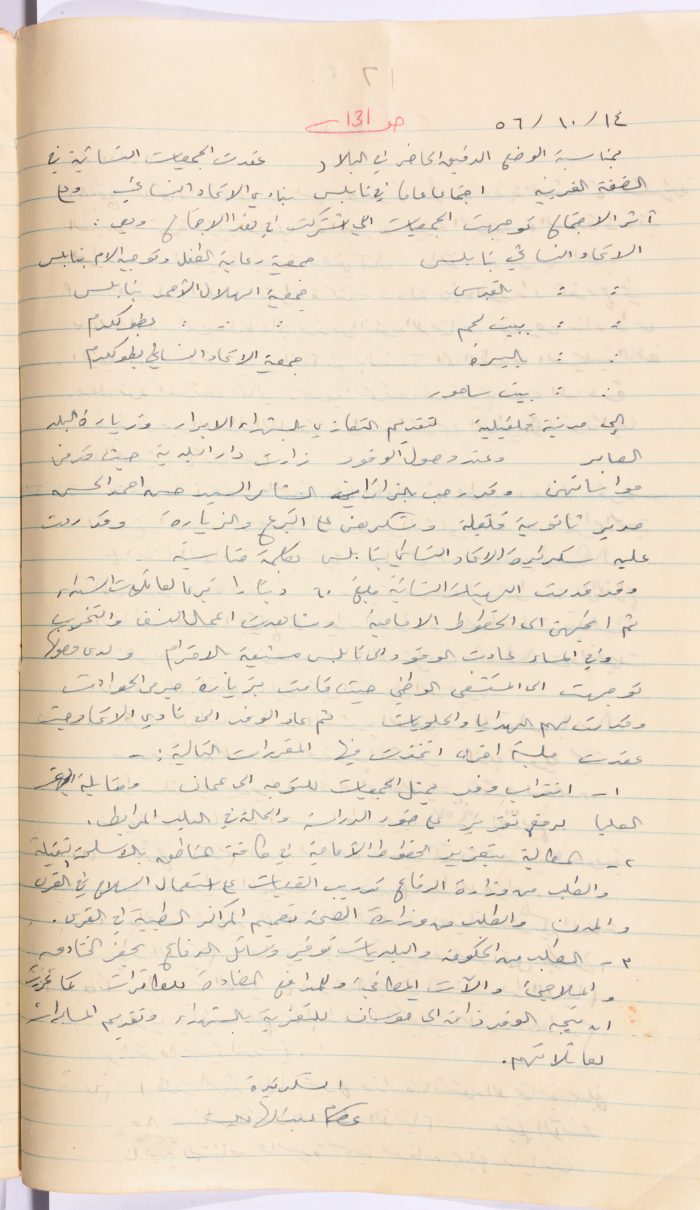 ٢١
١٤/ ١٠/ ٥٦ ص ١٣١
بمناسبة الوضع الدقيق الحاضر في البلاد عقدت الجمعيات النسائية في
الضفة الغربية اجتماعا عاما في نابلس بنادي الاتحاد النسائي وعلى
أثر الاجتماع توجهت الجمعيات التي اشتركت في هذا الاجتماع وهي :
الاتحاد النسائي بنابلس جمعية رعاية الطفل وتوجيه الام بنابلس
: : بالقدس جمعية الهلال الأحمر بنابلس
: : ببيت لحم : : : بطولكرم
: : بالبيرة جمعية الاتحاد النسائي بطولكرم
: : بيت ساحور
الى مدينة قلقيلية لتقديم التعازي بالشهداء الابرار وزيارة البلد
الصابر وعند وصول الوفود زارت دار البلدية حيث قدمن
مواساتهن وقد رحب بالزائرات الشاعر السيد حسن احمد
مدير ثانوية قلقيلة وشكرهن على التبرع والزيارة وقد ردت
عليه سكرتيرة الاتحاد النسائي بنابلس بكلمة مناسبة
وقد قدمت الهيئات النسائية مبلغ ٦٠ دينارا تبرعا لعائلات الشهداء
ثم اتجهن الى الخطوط الامامية وشاهدن اعمال النسف والتخريب
وفي المساء عادت الوفود الى نابلس ولدى وصولها
توجهت الى المستشفى الوطني حيث قامت بزيارة جرحى الحوادث
وقدمت لهم الهدايا والحلويات ثم عاد الوفد الى نادي الاتحاد حيث
عقدت جلسة اخرى اتخذت فيها المقررات التالية :-
١ - انتداب وفد يمثل الجمعيات للتوجه الى عمان ومقابلة
العليا لرفع تقرير على ضوء الدراسة والحالة في البلد المرابط.
٢ - المطالبة بتعزيز الخطوط الأمامية في كافة المناطق بالاسلحة الثقيلة
والطلب من وزارة الدفاع تدريب الفتيات على استعمال السلاح في القرى
والمدن والطلب من وزارة الصحة تعميم المراكز الطبية في القرى .
٣ - الطلب من الحكومة والبلديات توفير وسائل الدفاع بحفر الخنادق
والملاجئ وآلات المطافئ والمدافع المضادة للطائرات كما تقررت
ان يتجه الوفد ذاته الى حوسان للتعزية بالشهداء وتقديم المساعدات
لعائلاتهم .
السكرتيرة
عصام عبد الهادي